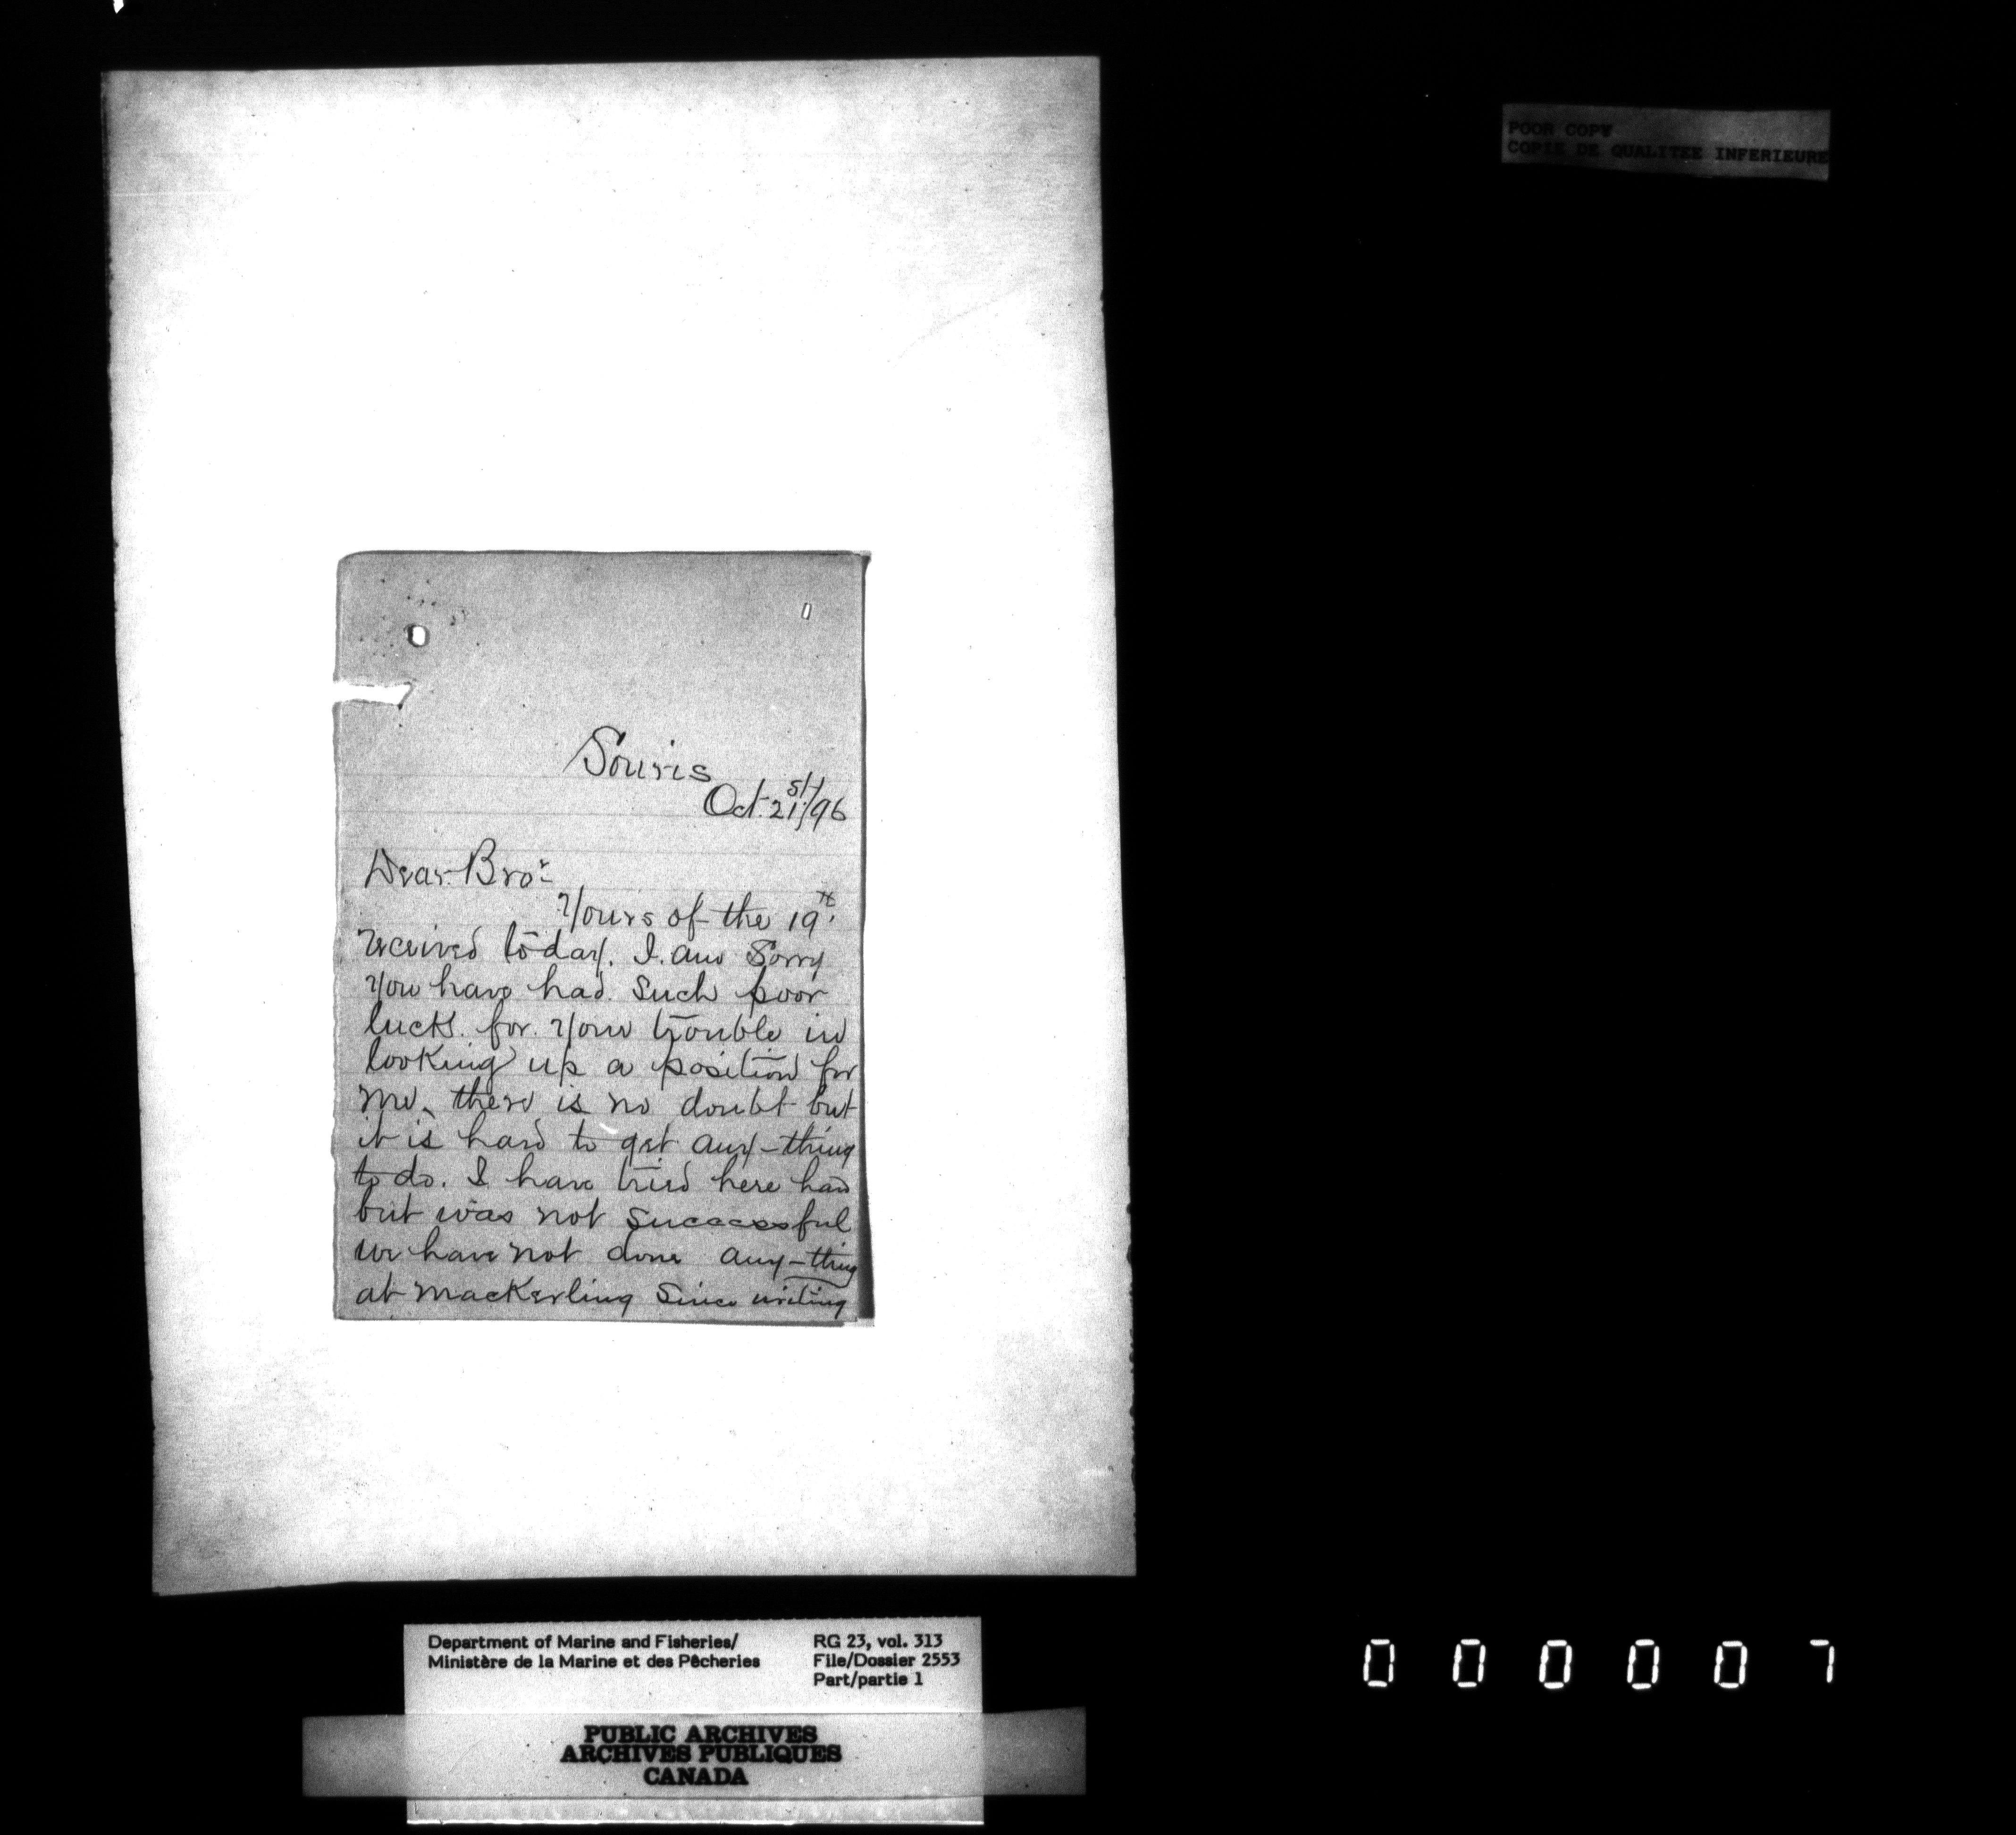 POOR COPY
COPIE DE QUALITEE INFERIEURE
Souris
Oct. 21st/96
Dear Bror
Yours of the 19th
received to day. I am Sorry
you have had such poor
luck for your trouble in
looking up a position for
me, there is no doubt but
it is hard to get any-thing
to do. I have tried here hard
but was not successful
we have not done any-thing
at macKerling Since writing
Department of Marine and Fisheries/
Ministère de la Marine et des Pêcheries
RG 23, vol. 313
File/Dossier 2553
Part/partie 1
PUBLIC ARCHIVES
ARCHIVES PUBLIQUES
CANADA
000007